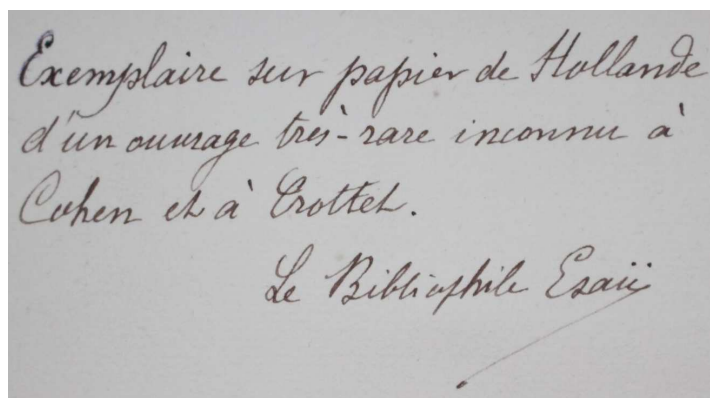 Exemplaire sur papier de Hollande
d'un ouvrage très-rare inconnu à
Cohen et à Crottet.
Le Bibliophile Esaü